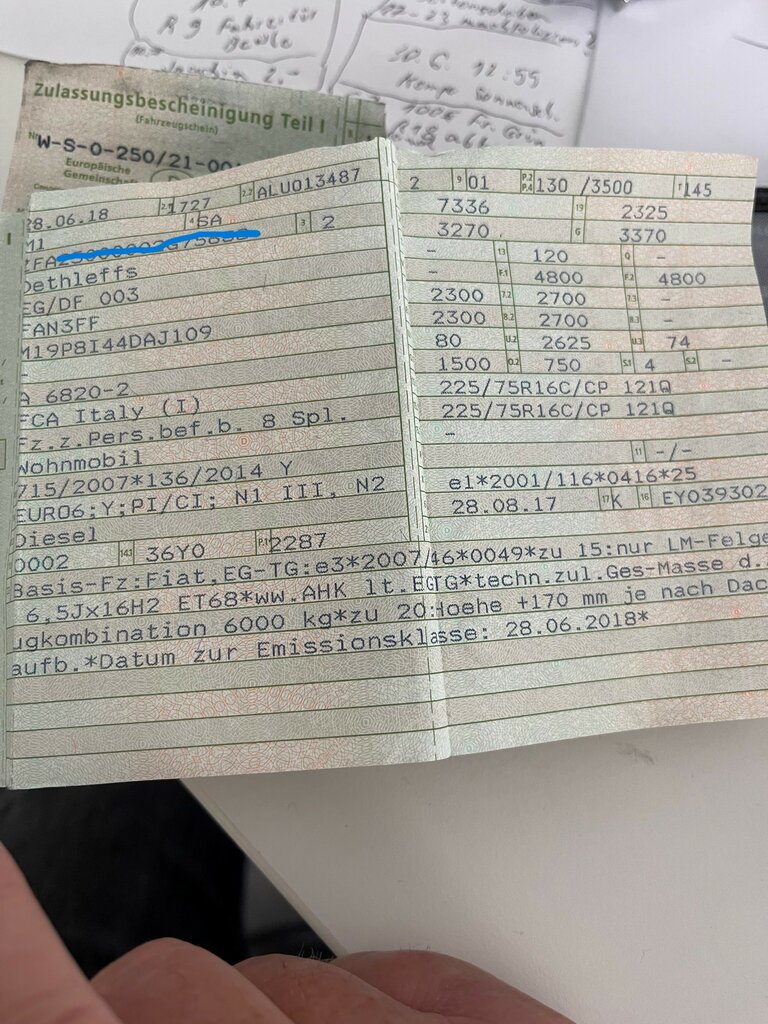 R 9 Fahrer für
22-23
30.6. 12:55
Zulassungsbescheinigung Teil I
(Fahrzeugschein)
Nr W-S-0-250/21-00
Europäische
Gemeinscha
28.06.18 2.1 1727 2.2 ALU013487
M1 4 SA 3 2
ZFA
Dethleffs
EG/DF 003
FAN3FF
M19P8I44DAJ109
A 6820-2
FCA Italy (I)
Fz.z.Pers.bef.b. 8 Spl.
Wohnmobil
715/2007*136/2014 Y
EURO6;Y;PI/CI; N1 III, N2
Diesel
0002 14.1 36Y0 P.1 2287
2 9 01 P.2 P.4 130 /3500 T 145
7336 19 2325
3270 G 3370
- 13 120 Q -
- F.1 4800 F.2 4800
2300 7.2 2700 7.3 -
2300 8.2 2700 8.3 -
80 U.2 2625 U.3 74
1500 O.2 750 S.1 4 S.2 -
225/75R16C/CP 121Q
225/75R16C/CP 121Q
-
11 -/-
e1*2001/116*0416*25
28.08.17 17 K 16 EY039302
Basis-Fz:Fiat,EG-TG:e3*2007/46*0049*zu 15:nur LM-Felge
6,5Jx16H2 ET68*ww.AHK lt.EGTG*techn.zul.Ges-Masse d.
ugkombination 6000 kg*zu 20:Hoehe +170 mm je nach Dac
aufb.*Datum zur Emissionsklasse: 28.06.2018*